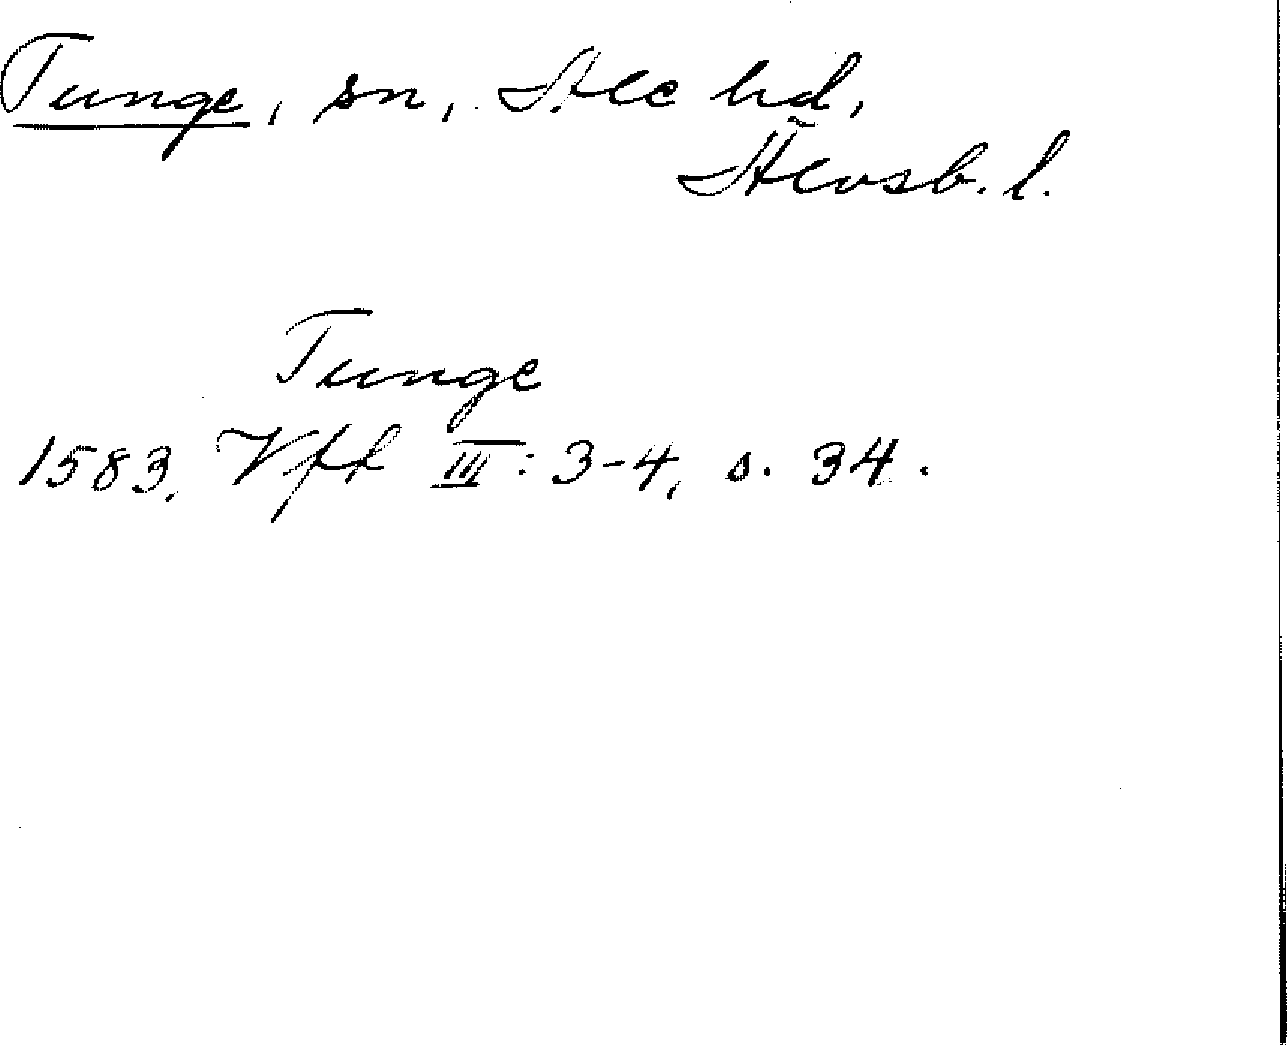 Tunge, sn, Ale hd,
Älvsb. l.
Tunge
1583. Vft III: 3-4, s. 34.